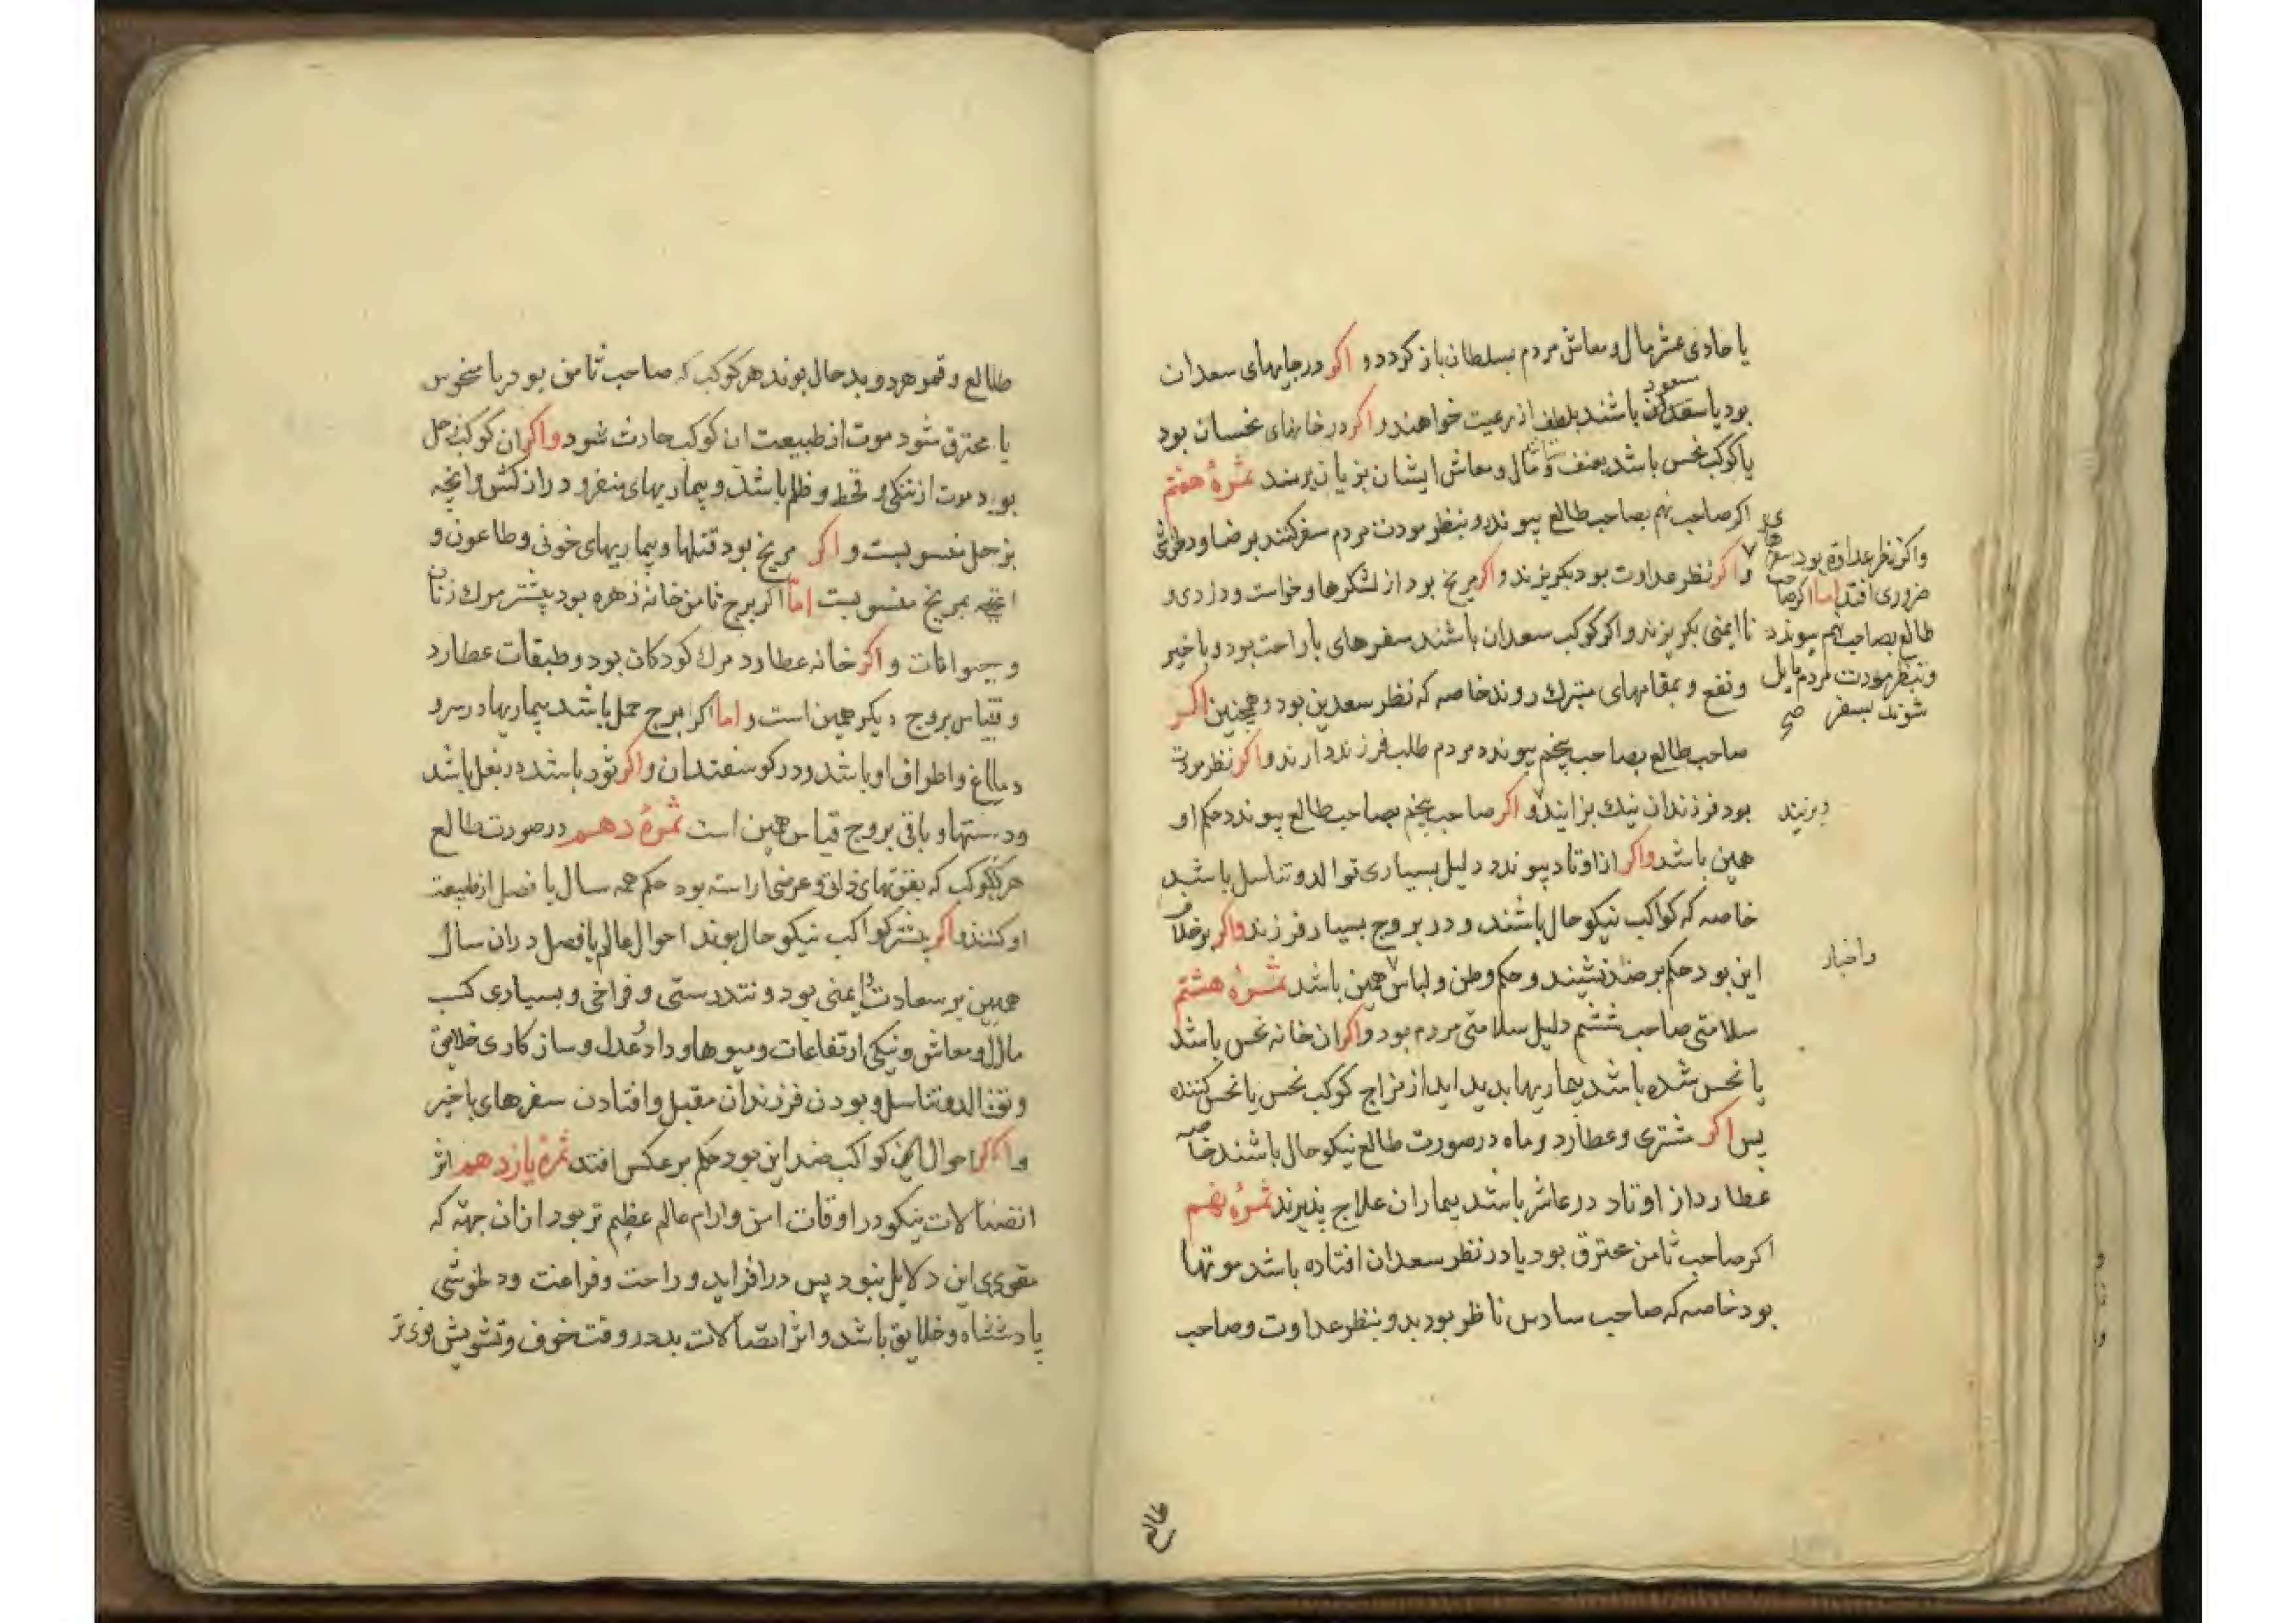 یا حادی عشر مال و معاش مردم بسلطان باز کردد و اکر در جایهای سعدان
سعود
بود یا سعدکن باشند بلطف از رعیت خواهند و اکر در خانهای نحسان بود
یا کوکب نحس باشد بعنف و مال و معاش ایشان بزیان برسد ثمرهٔ هفتم
اکر صاحب نهم بصاحب طالع پیوندد و بنظر مودت مردم سفر کنند برضا و دلخوشی
و اکر نظر عداوت بود بکریزند و اکر مریخ بود از لشکرها و خواست و دزدی و
نا ایمنی بکریزند و اکر کوکب سعدان باشند سفرهای با راحت بود و با خیر
و نفع و بمقامهای متبرك روند خاصه که نظر سعدین بود و همچنین اکر
صاحب طالع بصاحب پنجم پیوندد مردم طلب فرزند دارند و اکر نظر مودت
بود فرزندان نیك بزایند و اکر صاحب پنجم بصاحب طالع پیوندد حکم او
همین باشد و اکر از اوتاد پیوندد دلیل بسیاری توالد و تناسل باشد
خاصه که کواکب نیکو حال باشند و در بروج بسیار فرزند و اکر برخلاف
این بود حکم بر ضد نشیند و حکم وطن و لباس همین باشد ثمرهٔ هشتم
سلامتی صاحب ششم دلیل سلامتی مردم بود و اکر ان خانه نحس باشد
یا نحس شده باشد بیماریها بدید اید از مزاج کوکب نحس یا نحس کننده
پس اکر مشتری و عطارد و ماه در صورت طالع نیکو حال باشند خاصه
عطارد از اوتاد در عاشر باشد بیماران علاج پذیرند ثمرهٔ نهم
اکر صاحب ثامن محترق بود یا در نظر سعدان افتاده باشد موتها
بود خاصه که صاحب سادس ناظر بود بدو بنظر عداوت و صاحب
و اکر نظر عداوة بود سفرهای
ضروری افتد اما اکر صاحب
طالع بصاحب نهم پیوندد
و بنظر مودت مردم مایل
شوند بسفر صح
واخبار
طالع
طالع و قمر هر دو بد حال بوند هر کوکب که صاحب ثامن بود یا منحوس
یا محترق شود موت از طبیعت ان کوکب حادث شود و اکر ان کوکب زحل
بود موت از تنکی و قحط و ظلم باشد و بیماریهای و دراز کش و انچه
بزحل منسوبست و اکر مریخ بود قتلها و بیماریهای خونی و طاعون و
انچه بمریخ منسوبست اما اکر برج ثامن خانه زهره بود بیشتر مرك زنان
و حیوانات و اکر خانه عطارد مرك کودکان بود و طبقات عطارد
و قیاس بروج دیکر همین است و اما اکر برج حمل باشد بیماریها در سر و
دماغ و اطراف او باشد و در کوسفندان و اکر ثور باشد در بغل باشد
و دستها و باقی بروج قیاس همین است ثمرهٔ دهم در صورت طالع
هر کوکب که بقوتهای ذاتی و عرضی اراسته بود حکم همه سال یا فصل از طبیعت
او کنند و اکر بیشتر کواکب نیکو حال بوند احوال عالم یا فصل در ان سال
همین بر سعادت و ایمنی بود و تندرستی و فراخی و بسیاری کسب
مال و معاش و نیکی ارتفاعات و میوها و داد و عدل و سازکاری خلایق
و توالد و تناسل و بودن فرزندان مقبل و افتادن سفرهای با خیر
و اکر احوال این کواکب ضد این بود حکم بر عکس افتد ثمرهٔ یازدهم اثر
اتصالات نیکو در اوقات امن و ارام عالم عظیم تر بود از ان جهة که
مقوی این دلایل بود پس در افزاید و راحت و فراغت و دلخوشی
پادشاه و خلایق باشد و اثر اتصالات بد در وقت خوف و تشویش قوی تر